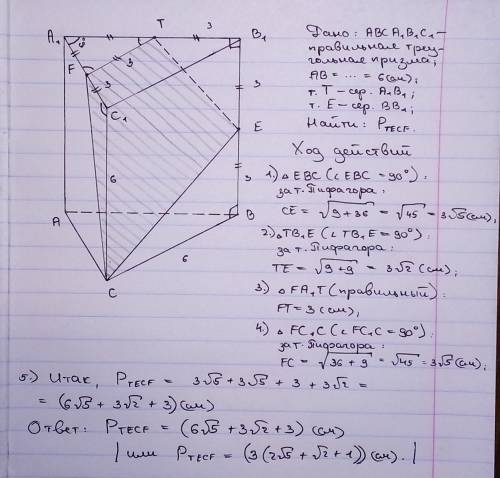 A₁
T
3
B₁
F
3
3
3
C₁
E
6
3
A
B
6
C
Дано: ABCA₁B₁C₁ –
правильная треу-
гольная призма;
AB = ... = 6 (см);
т. T – сер. A₁B₁;
т. E – сер. BB₁;
Найти: P_TECF.
Ход действий
1.) △ EBC (∠EBC = 90°):
за т. Пифагора:
CE = √(9+36) = √45 = 3√5 (см);
2.) △TB₁E (∠TB₁E = 90°):
за т. Пифагора:
TE = √(9+9) = 3√2 (см);
3.) △ FA₁T (правильный):
FT = 3 (см);
4.) △ FC₁C (∠FC₁C = 90°):
за т. Пифагора:
FC = √(36+9) = √45 = 3√5 (см);
5.) Итак, P_TECF = 3√5 + 3√5 + 3 + 3√2 =
= (6√5 + 3√2 + 3) (см)
Ответ: P_TECF = (6√5 + 3√2 + 3) (см)
| или P_TECF = (3(2√5 + √2 + 1)) (см). |